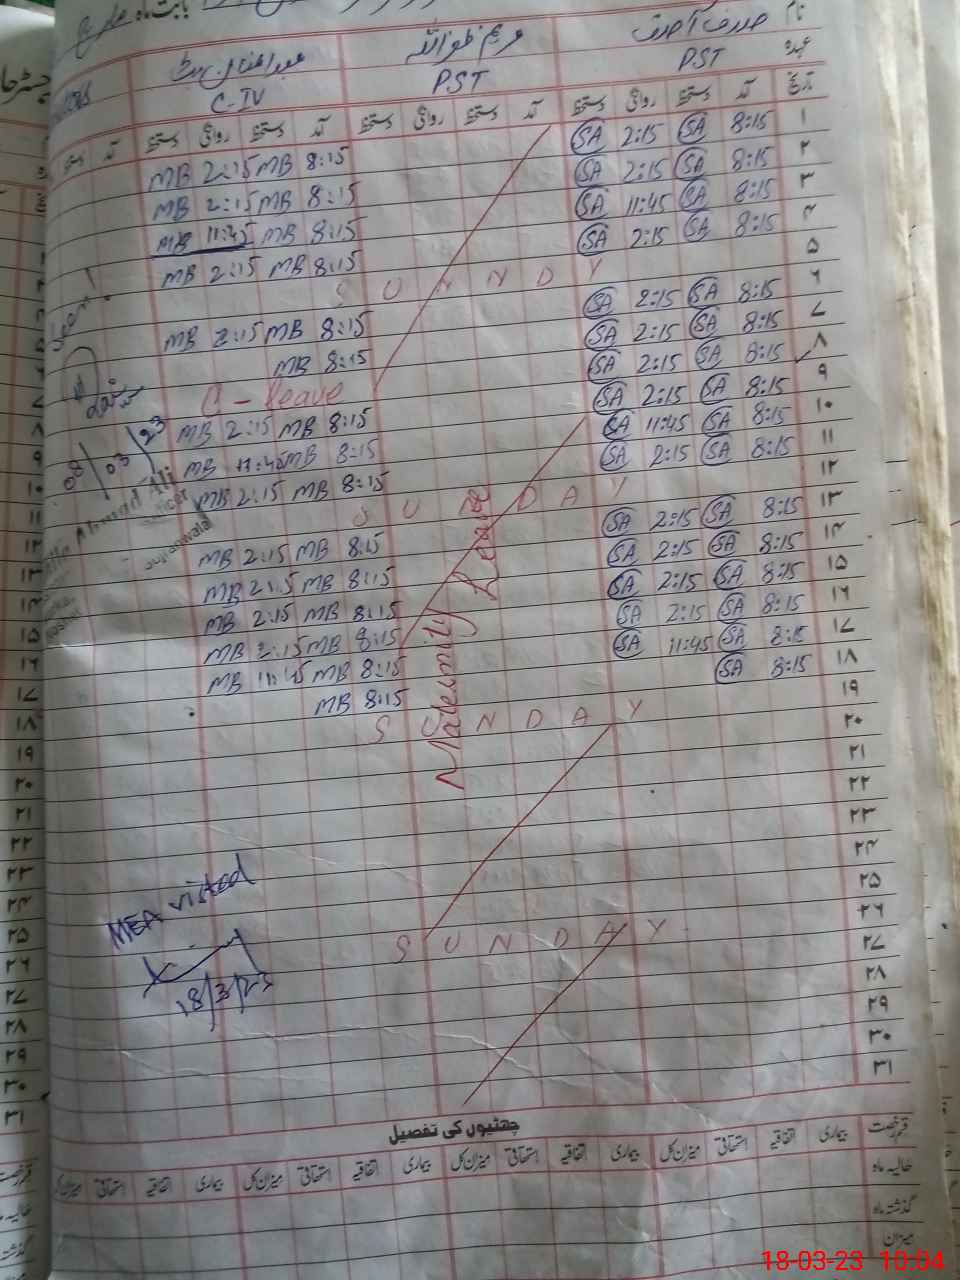 نام
عہدہ PST PST C-IV
تاریخ آمد دستخط روانگی دستخط آمد دستخط روانگی دستخط آمد دستخط روانگی دستخط آمد
۱ 8:15 SA 2:15 SA 8:15 MB 2:15 MB
۲ 8:15 SA 2:15 SA 8:15 MB 2:15 MB
۳ 8:15 SA 11:45 SA 8:15 MB 11:45 MB
۴ 8:15 SA 2:15 SA 8:15 MB 2:15 MB
۵ S U N N D Y
۶ 8:15 SA 2:15 SA 8:15 MB 2:15 MB
۷ 8:15 SA 2:15 SA 8:15 MB
۸ 8:15 SA 2:15 SA C-leave
۹ 8:15 SA 2:15 SA 8:15 MB 2:15 MB
۱۰ 8:15 SA 11:45 SA 8:15 MB 11:45 MB
۱۱ 8:15 SA 2:15 SA 8:15 MB 2:15 MB
۱۲ S U N D A Y
۱۳ 8:15 SA 2:15 SA 8:15 MB 2:15 MB
۱۴ 8:15 SA 2:15 SA 8:15 MB 2:15 MB
۱۵ 8:15 SA 2:15 SA 8:15 MB 2:15 MB
۱۶ 8:15 SA 2:15 SA 8:15 MB 2:15 MB
۱۷ 8:15 SA 11:45 SA 8:15 MB 11:45 MB
۱۸ 8:15 SA 8:15 MB
۱۹ S U N D A Y
۲۰
۲۱
۲۲
۲۳
۲۴
۲۵
۲۶ S U N D A Y
۲۷
۲۸
۲۹
۳۰
۳۱
Maternity Leave
08/03/23
Ahmad Ali
MEA visted
18/3/23
چھٹیوں کی تفصیل
قسم رخصت بیماری اتفاقیہ استحقاقی میزان کل بیماری اتفاقیہ استحقاقی میزان کل بیماری اتفاقیہ استحقاقی میزان کل بیماری اتفاقیہ استحقاقی میزان کل
حالیہ ماہ
گذشتہ ماہ
میزان
18-03-23 10:04